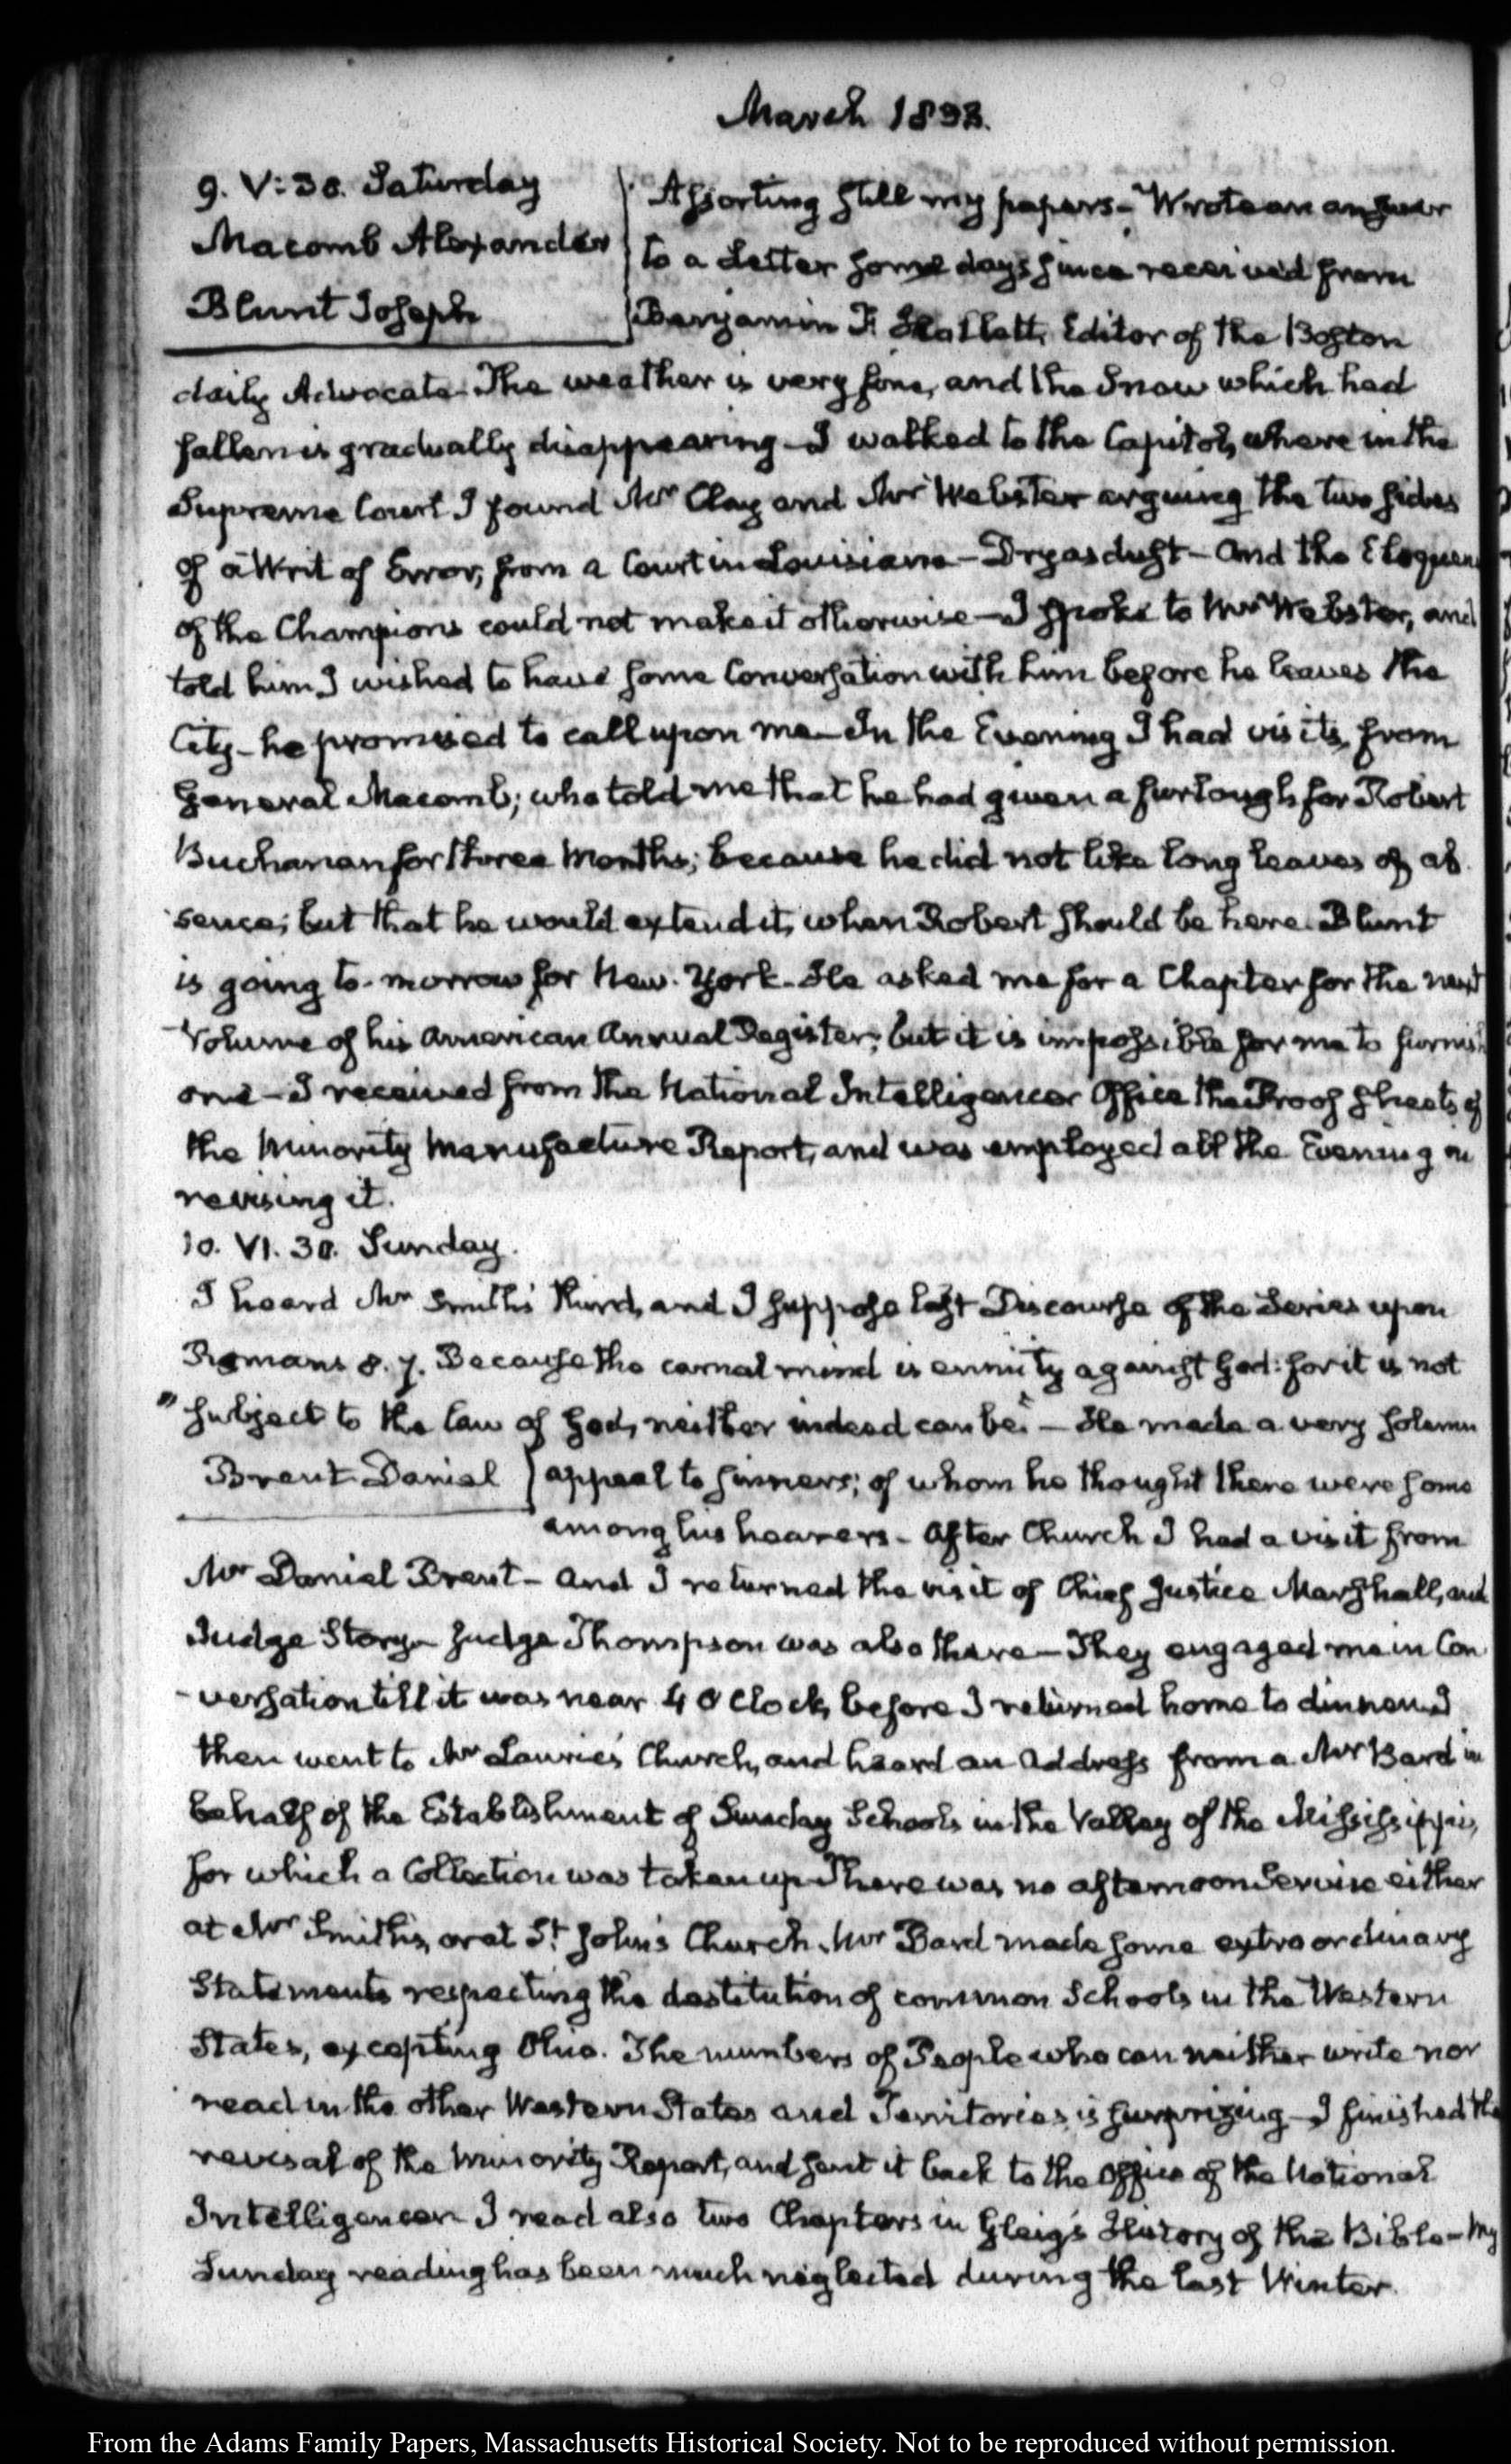 March 1833.
9. V:30. Saturday
Macomb Alexander
Blunt Joseph
Assorting still my papers - Wrote an answer
to a Letter some days since received from
Benjamin F. Hallett, Editor of the Boston
daily Advocate - The weather is very fine, and the Snow which had
fallen is gradually disappearing - I walked to the Capitol, where in the
Supreme Court I found Mr Clay and Mr Webster arguing the two sides
of a Writ of Error, from a Court in Louisiana - Dry as dust - and the Eloquen
of the Champions could not make it otherwise - I spoke to Mr Webster, and
told him I wished to have some Conversation with him before he leaves the
City - he promised to call upon me - In the Evening I had visits from
General Macomb; who told me that he had given a furlough for Robert
Buchanan for three Months; because he did not like long leaves of ab
sence; but that he would extend it, when Robert should be here. Blunt
is going to-morrow for New-York - He asked me for a Chapter for the next
Volume of his American Annual Register; but it is impossible for me to furnish
one - I received from the National Intelligencer Office the Proof sheets of
the Minority Manufacture Report, and was employed all the Evening in
revising it.
10. VI. 30. Sunday.
I heard Mr Smith's third, and I suppose last Discourse of the Series upon
Romans 8. 7. Because the carnal mind is enmity against God: for it is not
"subject to the law of God, neither indeed can be." - He made a very solemn
Brent Daniel
appeal to sinners; of whom he thought there were some
among his hearers - After Church I had a visit from
Mr Daniel Brent - And I returned the visit of Chief Justice Marshall, and
Judge Story - Judge Thompson was also there - They engaged me in Con
-versation till it was near 4 O'Clock, before I returned home to dinner - I
then went to Mr Laurie's Church, and heard an Address from a Mr Bard in
behalf of the Establishment of Sunday Schools in the Valley of the Mississippi,
for which a Collection was taken up - There was no afternoon Service either
at Mr Smith's, or at St John's Church. Mr Bard made some extraordinary
Statements respecting the destitution of common Schools in the Western
States, excepting Ohio. The numbers of People who can neither write nor
read in the other Western States and Territories, is surprizing - I finished the
revisal of the Minority Report, and sent it back to the Office of the National
Intelligencer - I read also two Chapters in Gleig's History of the Bible - My
Sunday reading has been much neglected during the last Winter.
From the Adams Family Papers, Massachusetts Historical Society. Not to be reproduced without permission.